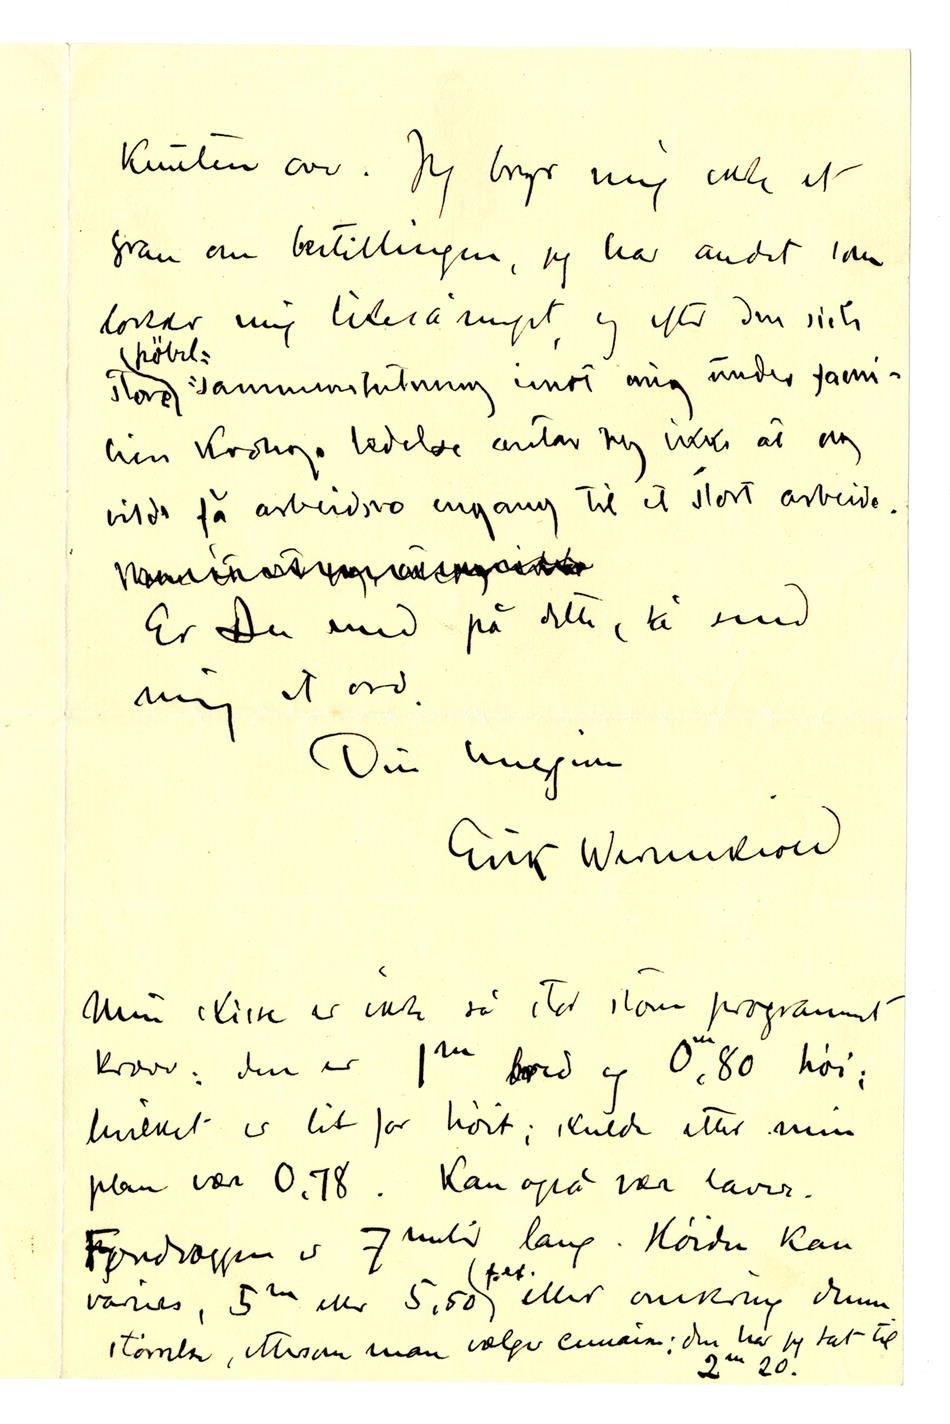 Knuten over. Jeg bryr mig ikke et
gran om bestillingen, jeg har andet som
lokker mig likeså meget, og efter den sidste
(pöbel=
store) =sammenslutning imot mig under fami-
lien Krohgs ledelse antar jeg ikke at jeg
vilde få arbeidsro engang til et stort arbeide.
Er Du med på dette, så send
mig et ord.
Din hengivne
Erik Werenskiold
Min skisse er ikke så stor som programmet
kræver; den er 1 m bred og 0,80 m høi;
hvilket er litt for høit; skulde etter min
plan være 0,78. Kan også være lavere.
Fondvæggen er 7 meter lang. Høiden kan
varieres, 5 m eller 5,50 (f.ex.) eller omkring denne
størrelse, ettersom man vælger; den har jeg sat til
2 m 20.